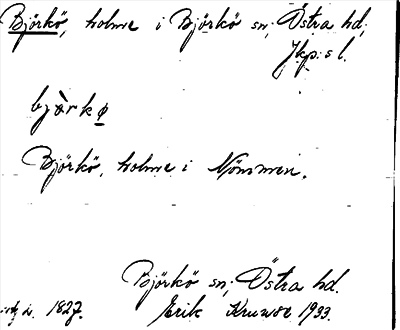 Björkö, holme i Björkö sn; Östra hd;
Jkp:s l.
bjæ̀rkø
Björkö, holme i Nömmen.
Björkö sn; Östra hd.
1827. Erik Kruuse 1933.